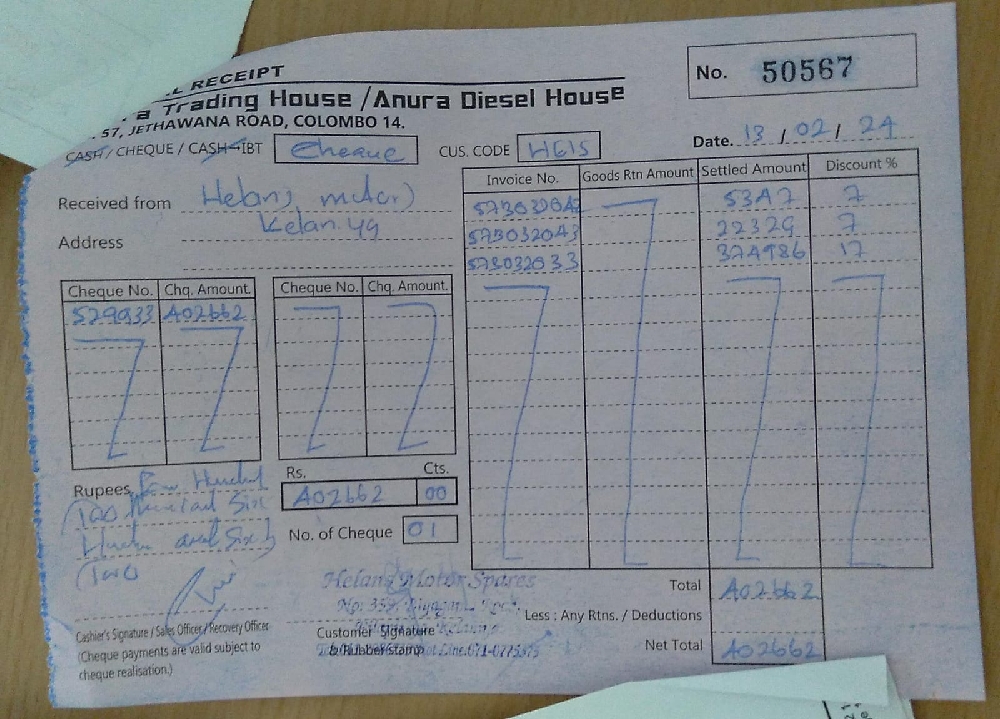 L RECEIPT
a Trading House /Anura Diesel House
57, JETHAWANA ROAD, COLOMBO 14.
No. 50567
CASH / CHEQUE / CASH-IBT Cheque CUS. CODE HE15 Date. 13 / 02 / 24
Received from Helang motor
Address Kelaniya
Invoice No. Goods Rtn Amount Settled Amount Discount %
573032042 5347 7
573032043 22329 7
573032033 374986 17
Cheque No. Chq. Amount. Cheque No. Chq. Amount.
529933 402662
Rupees Four Hundred
Two Thousand Six
Hundred and Sixty
Two
Rs. Cts.
402662 00
No. of Cheque 01
Helang Motor Spares
Total 402662
Less : Any Rtns. / Deductions
Net Total 402662
Cashier's Signature / Sales Officer / Recovery Officer
(Cheque payments are valid subject to
cheque realisation.)
Customer Signature
& Rubber Stamp